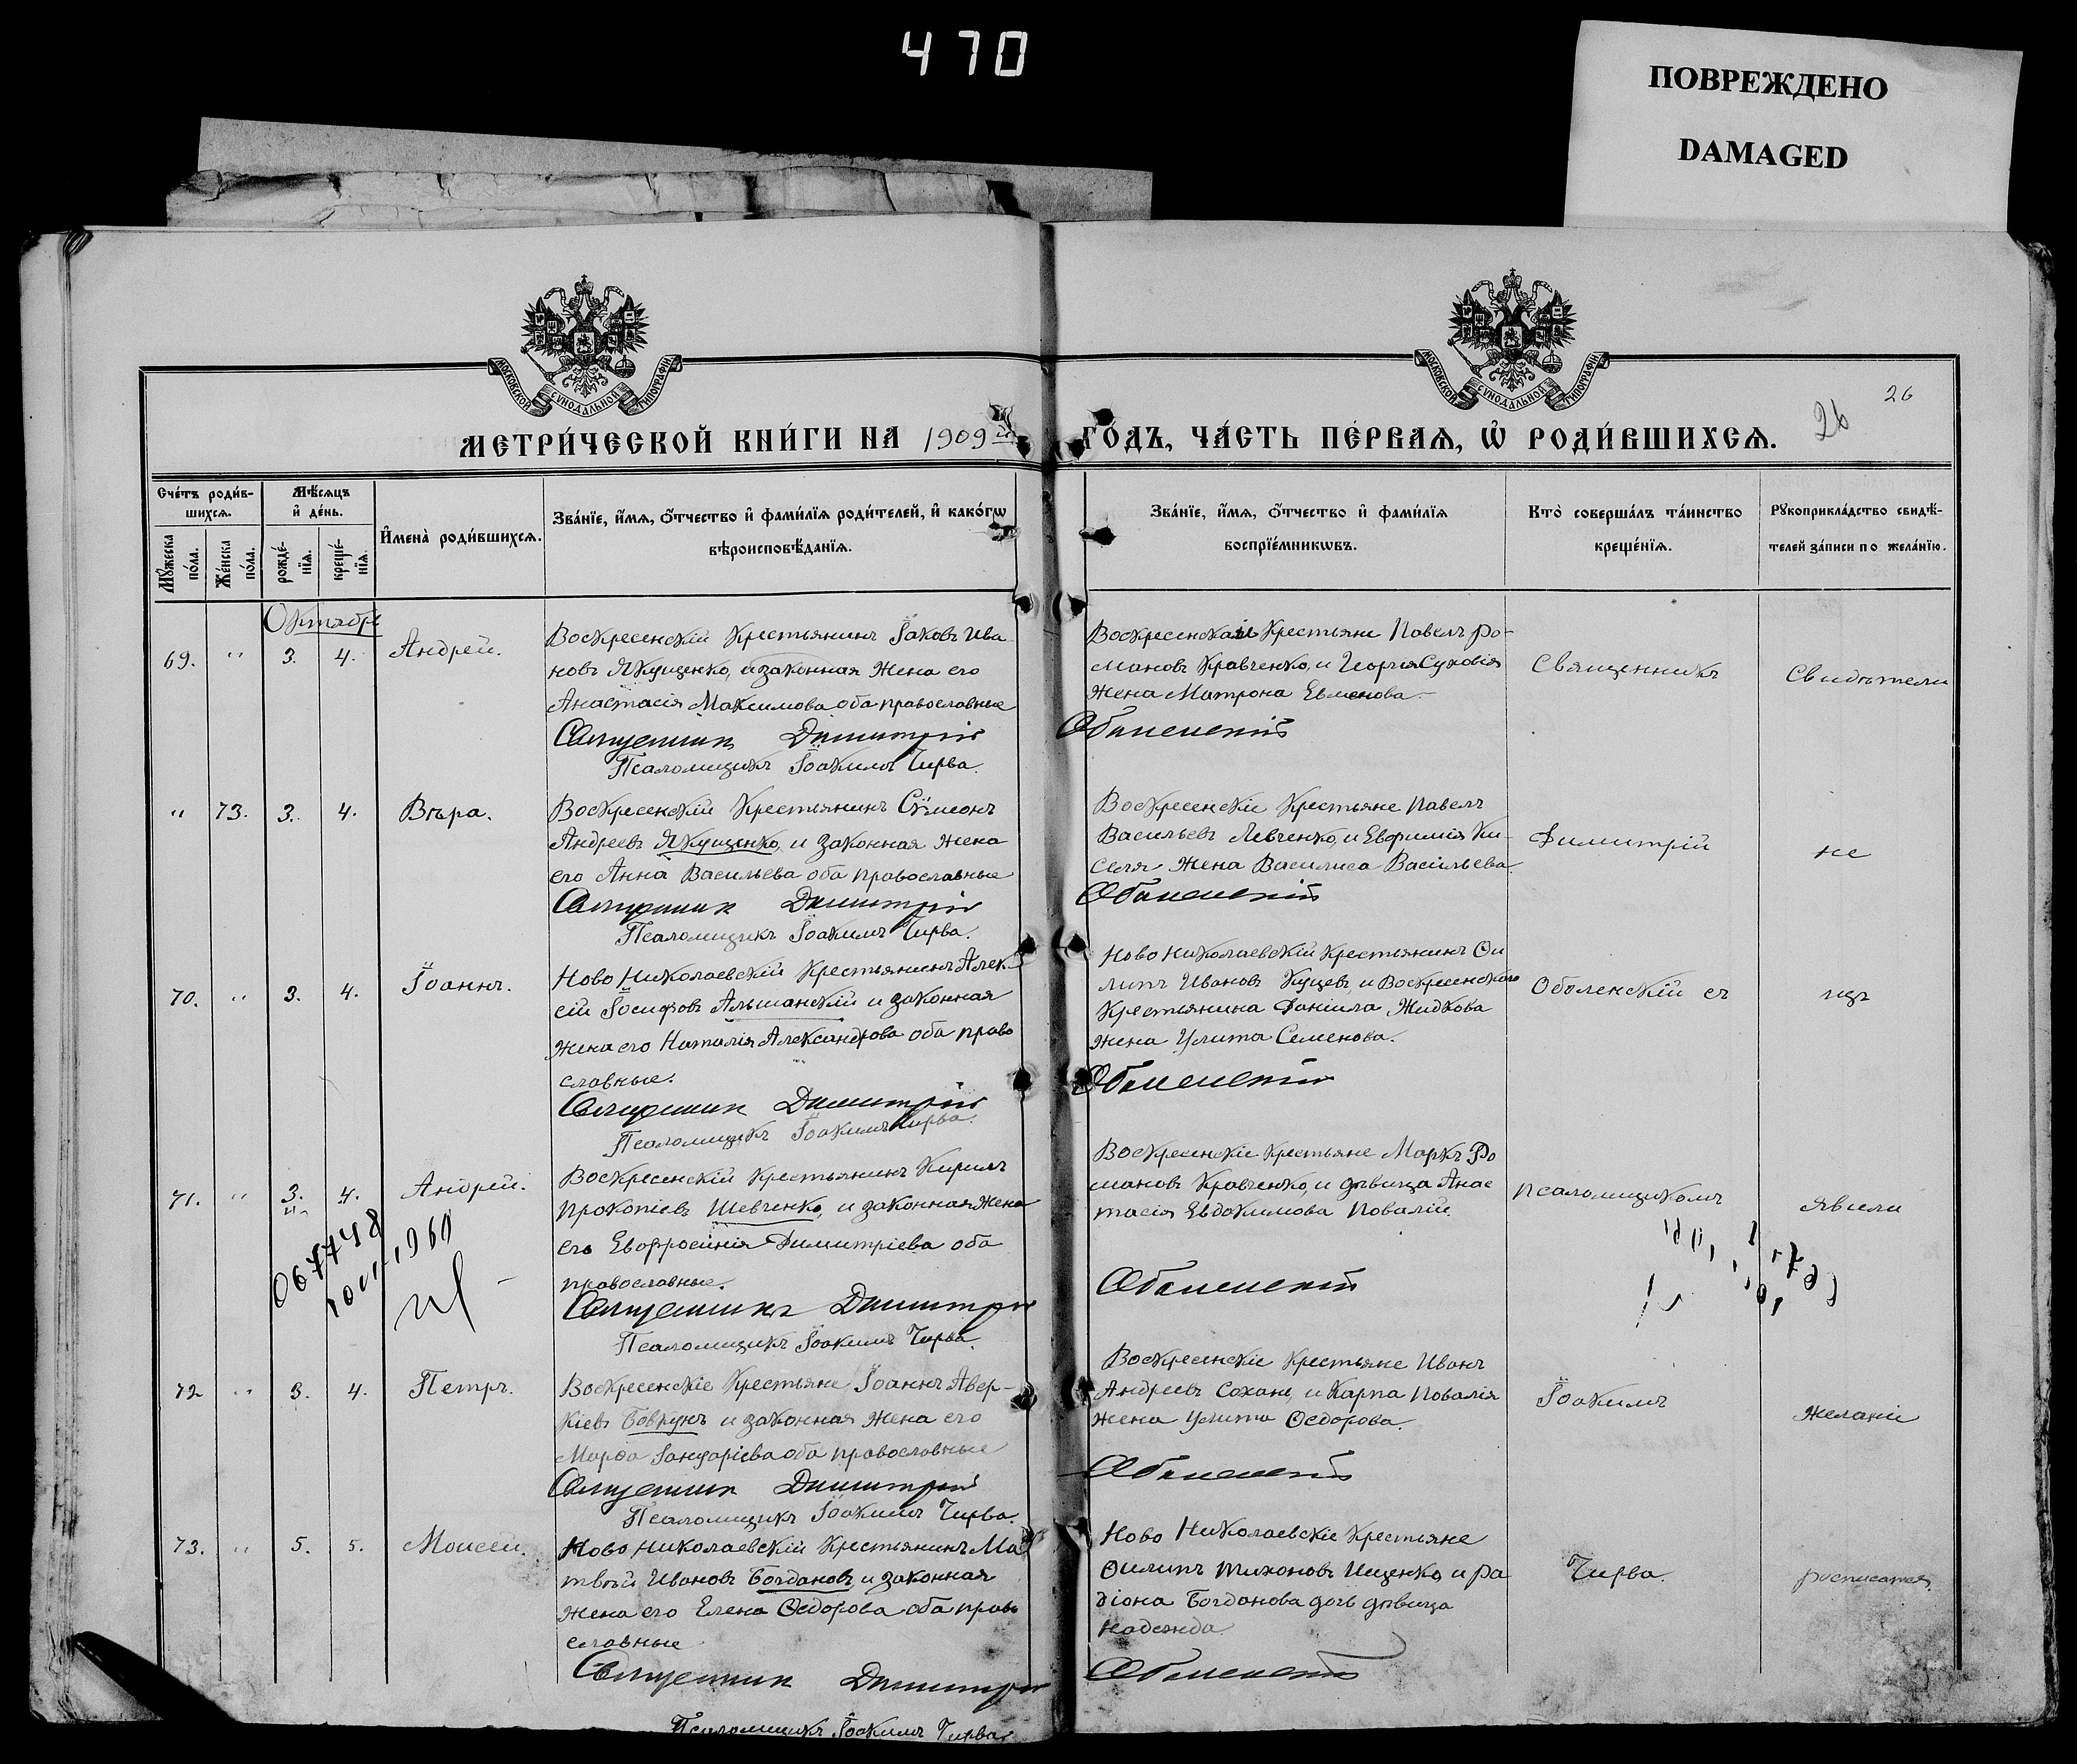 470
ПОВРЕЖДЕНО
DAMAGED
МОСКОВСКОЙ СѴНОДАЛЬНОЙ ТИПОГРАФІИ
МОСКОВСКОЙ СѴНОДАЛЬНОЙ ТИПОГРАФІИ
26
26
МЕТРИ́ЧЕСКОЙ КНИ́ГИ НА 1909 й
ГО́ДЪ, ЧА́СТЬ ПЕ́РВАѦ, Ѡ҆ РОДИ́ВШИХСѦ.
Сче́тъ роди́в-
шихсѧ.
Мѣ́сѧцъ
и҆ де́нь.
Мꙋ́жеска по́ла.
Же́нска по́ла.
рожде́-нїѧ.
креще́-нїѧ.
И҆мена̀ роди́вшихсѧ.
Зва́нїе, и҆́мѧ, ѻ҆́тчество и҆ фами́лїѧ роди́телей, и҆ како́гѡ
вѣроисповѣ́данїѧ.
Зва́нїе, и҆́мѧ, ѻ҆́тчество и҆ фами́лїѧ
воспрїе́мникѡвъ.
Кто̀ соверша́лъ та́инство
креще́нїѧ.
Рꙋкоприкла́дство свидѣ́-
телей за́писи по жела́нїю.
Октября
69. " 3. 4. Андрей.
Воскресенскій Крестьянинъ Іаковъ Ива
новъ Якущенко, и законная Жена его
Анастасія Максимова оба православные
Священник Димитрій
Псаломщикъ Іоакимъ Чирва.
Крестьяне Павелъ Ро-
мановъ Кравченко, и Георгія Суховія
Жена Матрона Евменова.
Оболенскій
Священникъ
Свидѣтели
" 73. 3. 4. Вѣра.
Воскресенскій Крестьянинъ Сѵмеонъ
Андреевъ Якущенко, и законная Жена
его Анна Васильева оба православные
Священник Димитрій
Псаломщикъ Іоакимъ Чирва.
Воскресенскіе Крестьяне Павелъ
Васильевъ Левченко, и Евфимія Ки-
селя Жена Василиса Васильева
Оболенскій
Димитрій
не
70. " 3. 4. Іоаннъ.
Ново Николаевскій Крестьянинъ Алек
сій Іосифовъ Альшанскій и законная
Жена его Наталія Александрова оба право
славные.
Священник Димитрій
Псаломщикъ Іоакимъ Чирва.
Ново Николаевскій Крестьянинъ Ѳи
липъ Ивановъ Куцевъ, и Воскресенскаго
Крестьянина Даніила Жидкова
Жена Улита Семенова.
Оболенскій
Оболенскій съ
71. " 3. 4. Андрей.
Воскресенскій Крестьянинъ Кирилъ
Прокопіевъ Шевченко, и законная Жена
его Евфросинія Димитріева оба
православные.
Священникъ Димитрій
Псаломщикъ Іоакимъ Чирва.
067748
Воскресенскіе Крестьяне Маркъ Ро
мановъ Кравченко, и дѣвица Анас
тасія Евдокимова Повалій.
Оболенскій
псаломщикомъ
явили
72 " 3. 4. Петръ.
Воскресенскіе Крестьяне Іоаннъ Авер-
кіевъ Бовкунъ и законная Жена его
оба православные
Священник Димитрій
Псаломщикъ Іоакимъ Чирва.
Воскресенскіе Крестьяне Иванъ
Андреевъ Сохань, и Карпа Повалія
жена Улита Ѳедорова.
Оболенскій
Іоакимъ
желаніе
73. " 5. 5. Моисей.
Ново Николаевскій Крестьянинъ Ма
твѣй Ивановъ Богдановъ и законная
Жена его Елена Ѳедорова оба право
славные
Священник Димитрій
Псаломщикъ Іоакимъ Чирва
Ново Николаевскіе Крестьяне
Ѳилипъ Тихоновъ Ищенко, и Ра
діона Богданова дочь дѣвица
Надежда
Оболенскій
Чирва.
росписатся.